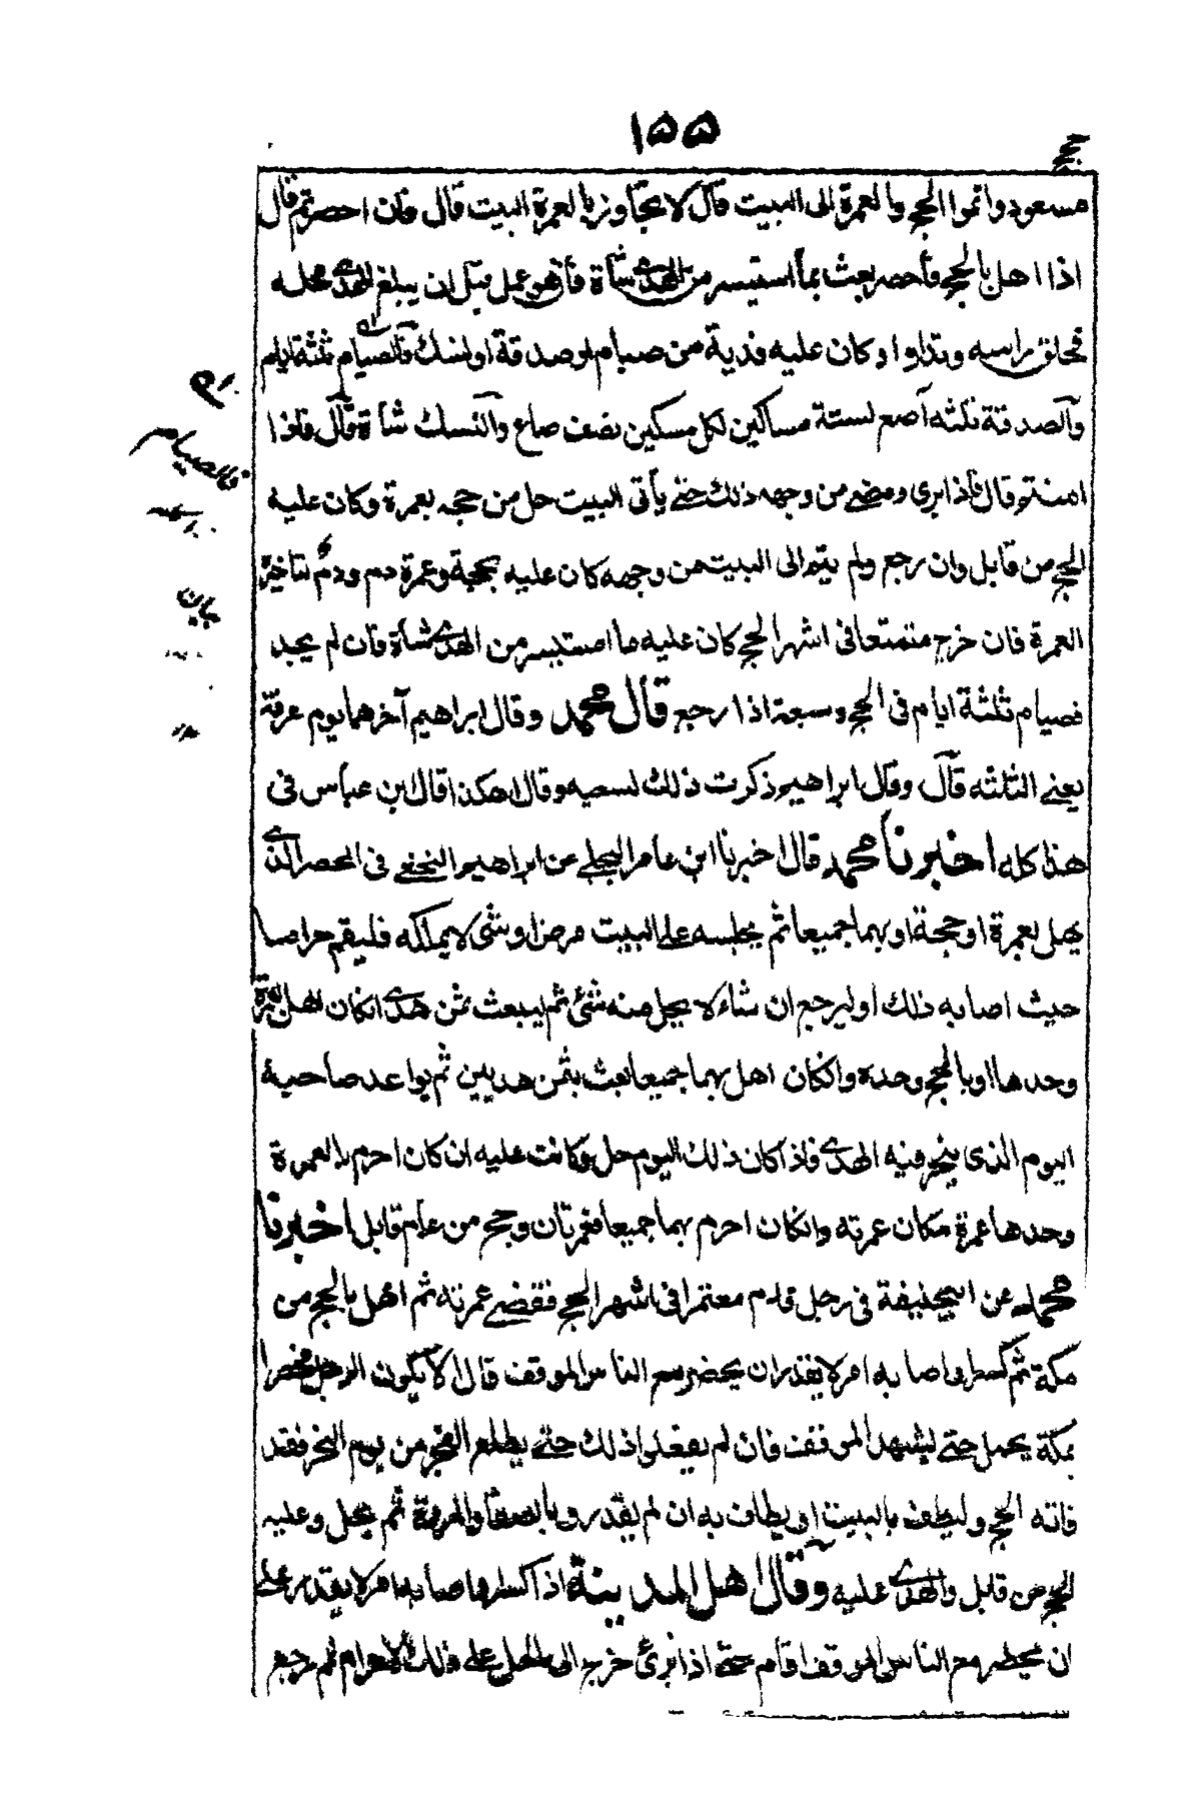 ۱۵۵
حج
مسعود واتموا الحج والعمرة الى البيت قال لا يتجاوز بالعمرة البيت قال فان احصرتم قال
اذا اهل بالحج فأحصر بعث بما استيسر من الهدى شاة فأن هو عمل قبل ان يبلغ الهدى محله
فحلق راسه وتداوا د كان عليه فدية من صيام او صدقة او نسك قال الصيام ثلثة ايام
والصدقة ثلثه آصع لستة مساكين لكل مسكين نصف صاع والنسك شاة قال فاذا
امنتم وقال فاذا برى ومضى من وجهه ذلك حتى يأتى البيت حل من حجه بعمرة وكان عليه
الحج من قابل وان رجع ولم يتم الى البيت من وجهه كان عليه حجة وعمرة دم ودم لتاخيره
العمرة فان خرج متمتعا فى اشهر الحج كان عليه ما استيسر من الهدى شاة فان لم يجد
فصيام ثلثة ايام فى الحج وسبعة اذا رجع قال محمد وقال ابراهيم آخرهما يوم عرفة
يعنى الثلثه قال وقال ابراهيم ذكرت ذلك لسعيد وقال هكذا قال ابن عباس فى
هذا كله اخبرنا محمد قال اخبرنا ابن عامر البجلى عن ابراهيم النخعى فى المحصر الذى
يهل بعمرة او حجة او بهما جميعا ثم يحبسه على البيت مرض او شئ لا يملكه فليقم حراما
حيث اصابه ذلك او ليرجع ان شاء لا يحل منه شئ ثم ليبعث ثمن هدى انكان اهل بعمرة
وحدها او بالحج وحده وانكان اهل بهما جميعا بعث بثمن هديين ثم يواعد صاحبه
اليوم الذى ينحر فيه الهدى فاذا كان ذلك اليوم حل وكانت عليه ان كان احرم بالعمرة
وحدها عمرة مكان عمرته وانكان احرم بهما جميعا فعمرتان وحج من عام قابل اخبرنا
محمد عن ابيحنيفة فى رجل قدم معتمرا فى اشهر الحج فقضى عمرته ثم اهل بالحج من
مكة ثم كسر او اصابه امر لا يقدر ان يحضر مع الناس الموقف قال لا يكون الرجل محصرا
بمكة يحمل حتى يشهد الموقف فان لم يفعلوا ذلك حتى يطلع الفجر من يوم النحر فقد
فاته الحج وليطف بالبيت او يطاف به ان لم يقدر وبالصفا والمروة ثم يحل وعليه
الحج من قابل والهدى عليه وقال اهل المدينة اذا كسر او اصابه امر لا يقدر على
ان يحضر مع الناس الموقف اقام حتى اذا برئ خرج الى الحل على ذلك الاحرام ثم رجع
فالصيام
بيان